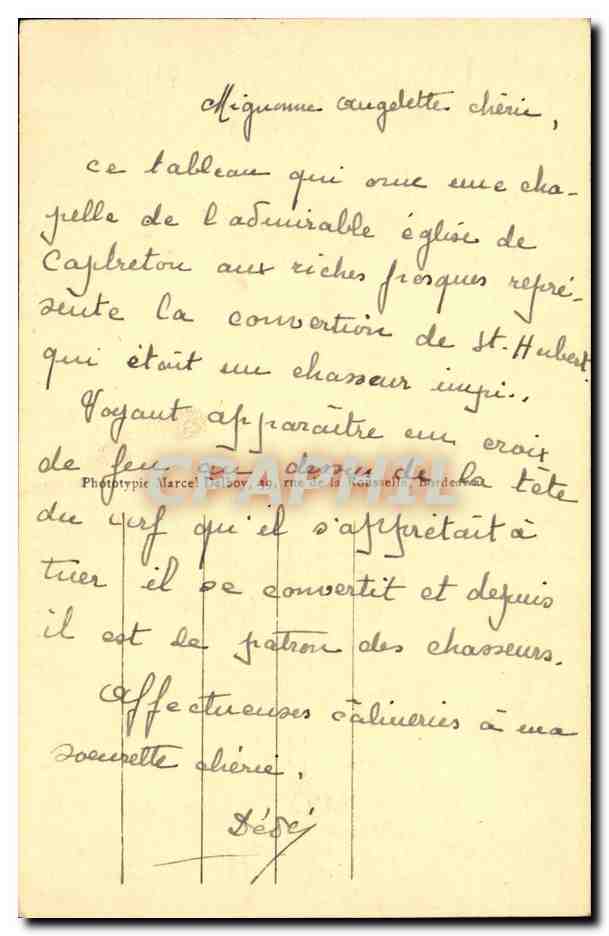 Mignonne angelette chérie,
ce tableau qui orne une cha-
pelle de l'admirable église de
Capbreton aux riches fresques repré-
sente la convertion de St. Hubert
qui était un chasseur impi..
Voyant apparaître en croix
de feu au dessus de la tête
Phototypie Marcel Delboy, rue de la Rousselle, Bordeaux
CPAPHIL
du cerf qu'il s'apprêtait à
tuer il se convertit et depuis
il est le patron des chasseurs.
Affectueuses câlineries à ma
soeurette chérie.
Dédé